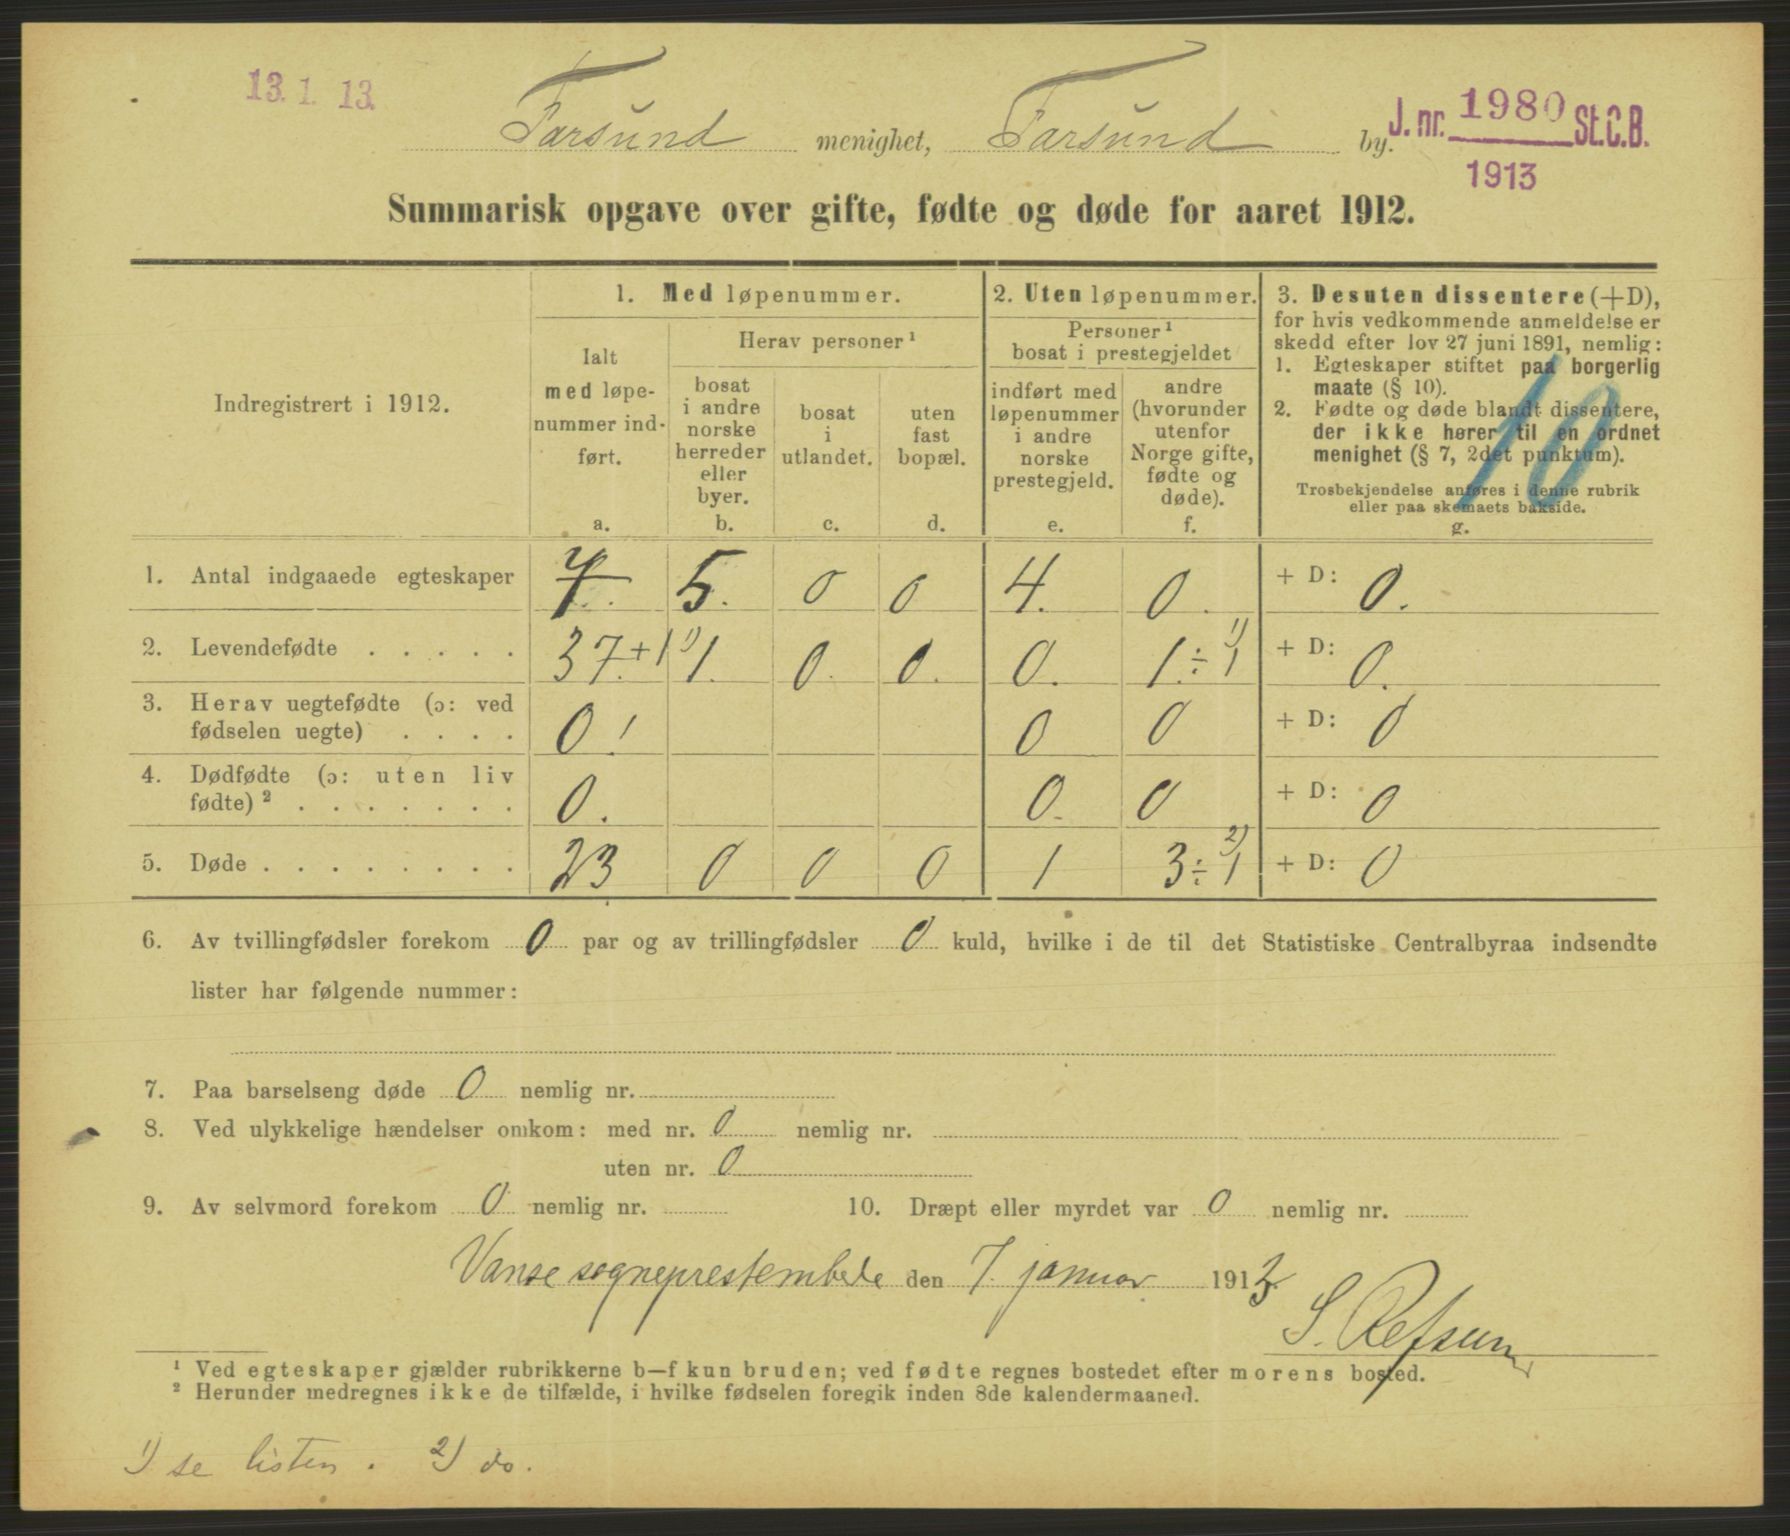 13. 1. 13.
Farsund menighet, Farsund by.
J. nr. 1980 St. C. B.
1913
Summarisk opgave over gifte, fødte og døde for aaret 1912.
Indregistrert i 1912.
1. Med løpenummer.
Ialt
med løpe-
nummer ind-
ført.
a.
Herav personer ¹
bosat
i andre
norske
herreder
eller
byer.
b.
bosat
i
utlandet.
c.
uten
fast
bopæl.
d.
2. Uten løpenummer.
Personer ¹
bosat i prestegjeldet
indført med
løpenummer
i andre
norske
prestegjeld.
e.
andre
(hvorunder
utenfor
Norge gifte,
fødte og
døde).
f.
3. Desuten dissentere (+D),
for hvis vedkommende anmeldelse er
skedd efter lov 27 juni 1891, nemlig:
1. Egteskaper stiftet paa borgerlig
maate (§ 10).
2. Fødte og døde blandt dissentere,
der ikke hører til en ordnet
menighet (§ 7, 2det punktum).
Trosbekjendelse anføres i denne rubrik
eller paa skemaets bakside.
g.
10
1. Antal indgaaede egteskaper 7. 5. 0 0 4. 0. + D: 0.
2. Levendefødte . . . . . 37.+1 ¹) 1. 0. 0. 0. 1. ÷ 1 ¹) + D: 0.
3. Herav uegtefødte (ɔ: ved
fødselen uegte) . . . . 0! 0 0 + D: 0
4. Dødfødte (ɔ: uten liv
fødte) ² . . . . . . . 0. 0. 0 + D: 0
5. Døde . . . . . . . . 23 0 0 0 1 3 ÷ 1 ²) + D: 0
6. Av tvillingfødsler forekom 0 par og av trillingfødsler 0 kuld, hvilke i de til det Statistiske Centralbyraa indsendte
lister har følgende nummer:
7. Paa barselseng døde 0 nemlig nr.
8. Ved ulykkelige hændelser omkom: med nr. 0 nemlig nr.
uten nr. 0
9. Av selvmord forekom 0 nemlig nr. 10. Dræpt eller myrdet var 0 nemlig nr.
Vanse sogneprestembede den 7. januar 1913.
S. Refsum
¹ Ved egteskaper gjælder rubrikkerne b—f kun bruden; ved fødte regnes bostedet efter morens bosted.
² Herunder medregnes ikke de tilfælde, i hvilke fødselen foregik inden 8de kalendermaaned.
¹) se listen. ²) do.